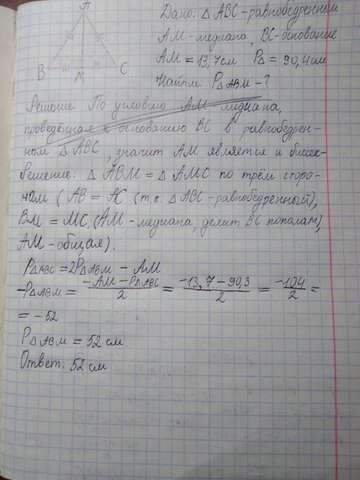 A
B
M
C
Дано: △ABC-равнобедренный
AM-медиана, BC-основание
AM = 13,7см P△ = 90,4см
Найти: P△ABM-?
Решение По условию AM-медиана,
проведённая к основанию BC в равнобедрен-
ном △ABC, значит AM является и биссек-
Решение: △ABM = △AMC по трём сторо-
нам (AB = AC (т.к. △ABC-равнобедренный),
BM = MC, (AM-медиана, делит BC пополам),
AM-общая).
P△ABC = 2P△ABM - AM
-P△ABM = -AM - P△ABC / 2 = -13,7 - 90,3 / 2 = -104 / 2 =
= -52
P△ABM = 52 см
Ответ: 52 см